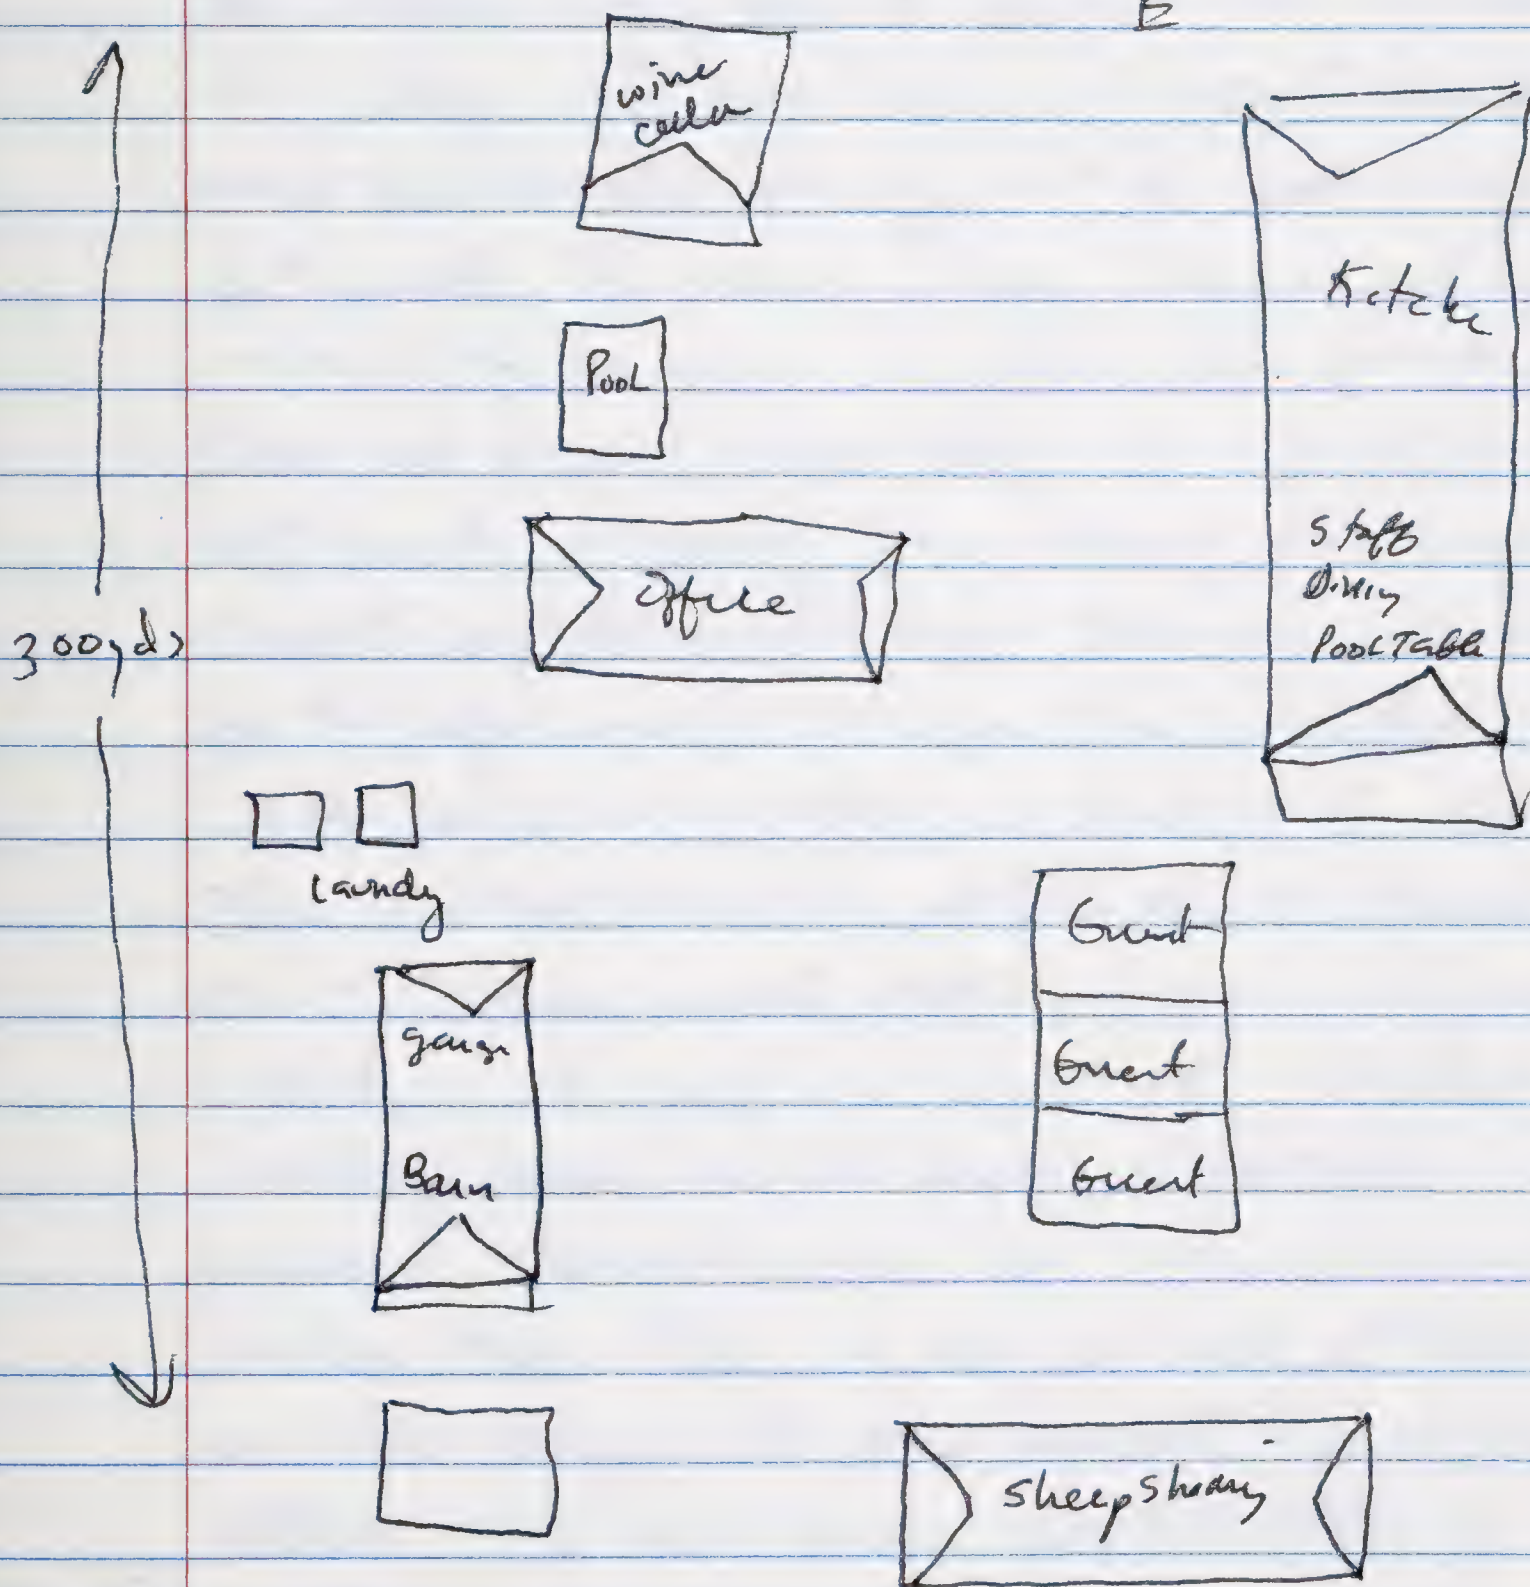 E
wine
cellar
Kitche
Pool
Staff
Dining
Pool Table
Office
300 yds
Laundry
Guest
garage
Guest
Barn
Guest
Sheep Shearing